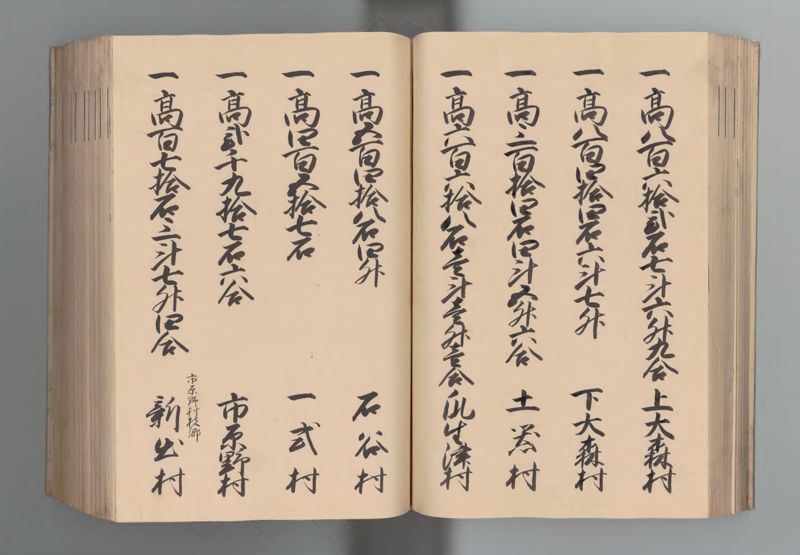 一高八百六拾弐石七斗六升九合 上大森村
一高八百四拾四石六斗七升 下大森村
一高三百拾四石四斗五升六合 土器村
一高六百六拾八石壱斗壱升壱合 瓜生津村
一高五百四拾八石四升 石谷村
一高四百五拾七石 一式村
一高弐千九拾七石六合 市原野村
市原野村枝郷
一高百七拾石三斗七升四合 新出村